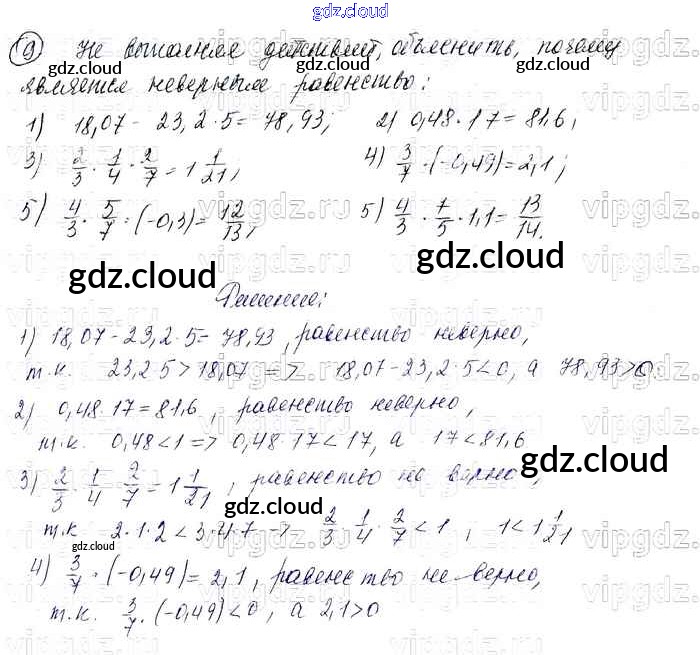 gdz.cloud
9) Не выполняя действий, объяснить, почему
является неверным равенство:
1) 18,07 - 23,2 · 5 = 78,93; 2) 0,48 · 17 = 81,6;
3) 2/3 · 1/4 · 2/7 = 1 1/21; 4) 3/7 · (-0,49) = 2,1;
5) 4/3 · 5/7 : (-0,3) = 12/13; 5) 4/3 · 1/5 · 1,1 = 13/14.
Решение:
1) 18,07 - 23,2 · 5 = 78,93, равенство неверно,
т.к. 23,2·5 > 18,07 => 18,07 - 23,2 · 5 < 0, а 78,93 > 0.
2) 0,48 · 17 = 81,6, равенство неверно,
т.к. 0,48 < 1 => 0,48 · 17 < 17, а 17 < 81,6
3) 2/3 · 1/4 · 2/7 = 1 1/21, равенство не верно,
т.к 2·1·2 < 3·4·7 => 2/3 · 1/4 · 2/7 < 1, 1 < 1 1/21
4) 3/7 · (-0,49) = 2,1, равенство не верно,
т.к. 3/7 · (-0,49) < 0, а 2,1 > 0